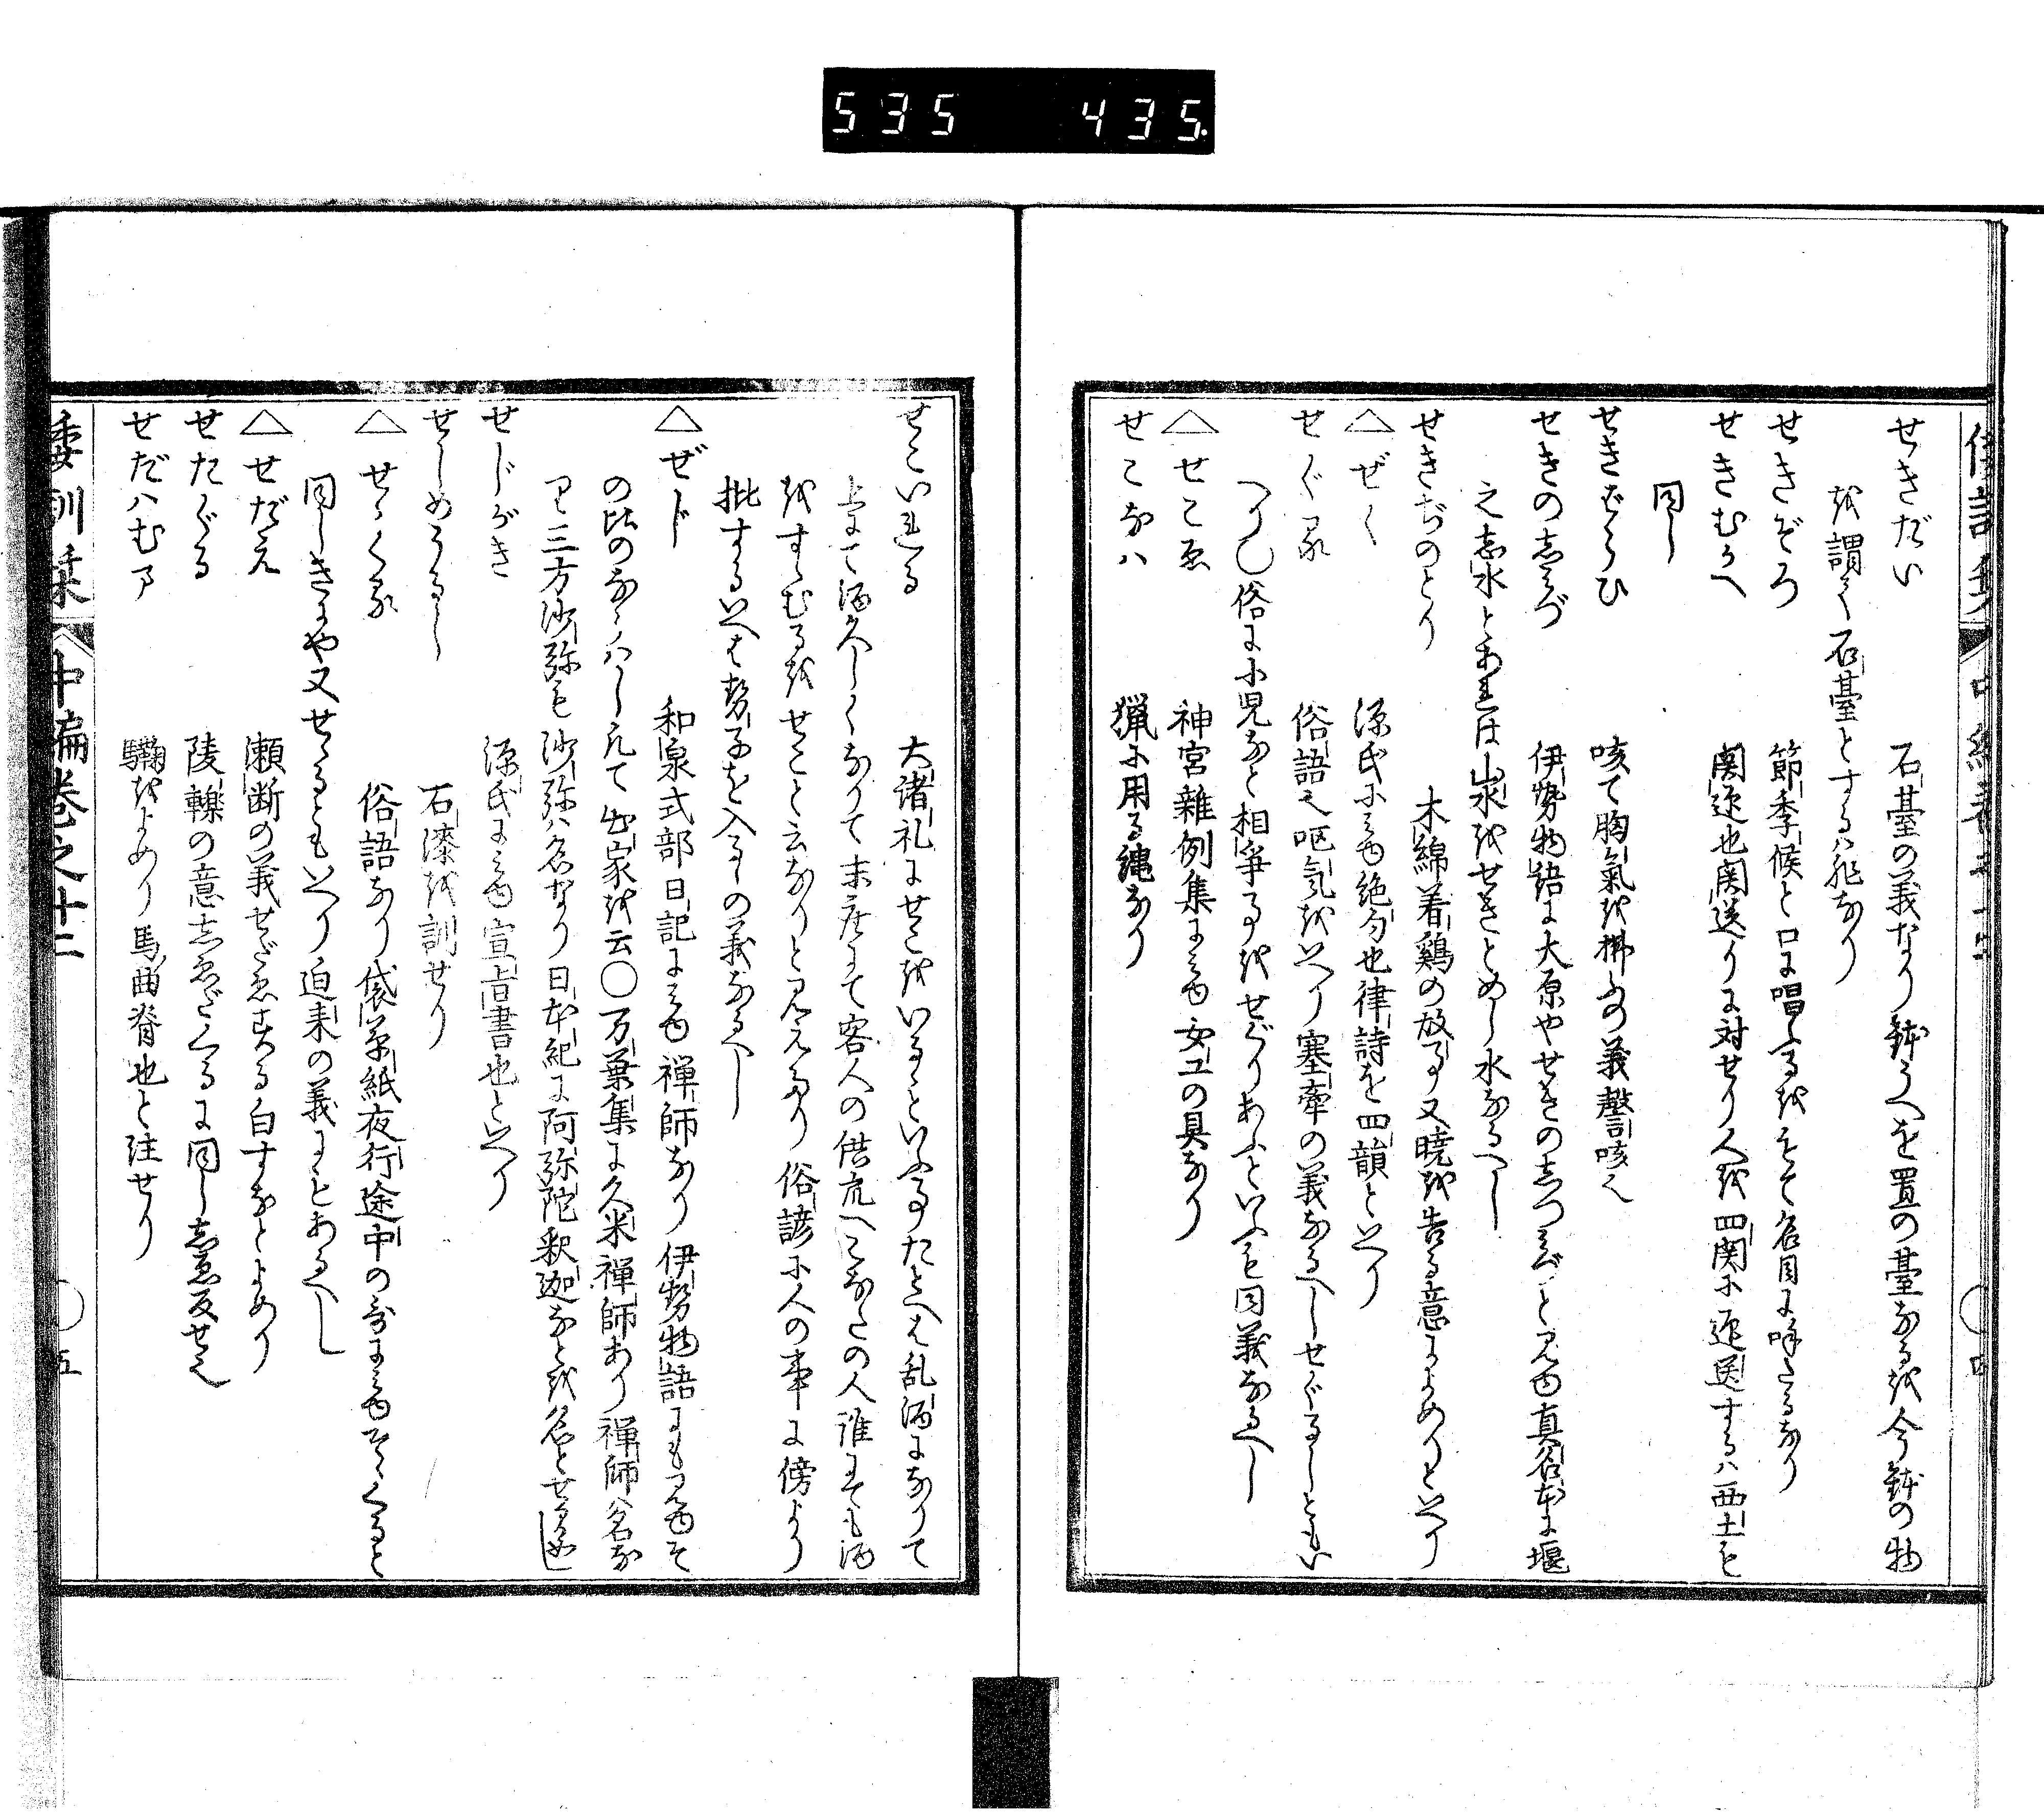 535 435.
せきだい 石臺の義なり鉢うへを置の臺なるを今鉢の物
を謂て石臺とするハ非なり
せきぞろ 節季候と口に唱ふるをもて名目に呼たるなり
せきむかへ 関迎也関送りに対せり人を四関に迎送するハ西土も
同し
せきばらひ 咳て胸氣を拂ふの義謦咳也
せきのしミづ 伊勢物語に大原やせきのしつミづと見ゆ真名本に堰
之志水とあれは山水をせきとめし水なるへし
せきぢのとり 木綿着鷄の故事又暁を告る意によめりといへり
△ぜく 源氏にみゆ絶句也律詩を四韻といへり
せぐる 俗語也嘔氣をいへり塞牽の義なるへしせぐるしともい
へり○俗に小児なと相爭ふをせぐりあふといふも同義なるへし
△せこゑ 神宮雜例集にみゆ女工の具なり
せこなハ 猟に用る縄なり
せこいれる 大諸礼にせこをいるゝといふ事たとへは乱酒になりて
上にて酒久しくなりて末座にて客人の供亢へこなたの人誰にても酒
をすゝむるをせこと云なりと見えたり俗諺に人の事に傍より
批するいへは勢子を入るの義なるへし
△ぜじ 和泉式部日記にみゆ禅師なり伊勢物語にも見ゆそ
の比のならハしにて出家を云○万葉集に久米禅師あり禅師ハ名な
り三方沙弥も沙弥ハ名なり日本紀に阿弥陀釈迦なとを名とせる如し
せじがき 源氏にみゆ宣旨書也といへり
せしめうるし 石漆を訓せり
△せゝくる 俗語なり袋草紙夜行途中の哥にみゆせゝくると
同しきにや又せゝるともいへり迫来の義にもとあるへし
△せだえ 瀬断の義せだゑする白すなとよめり
せたぐる 陵轢の意しゑだくるに同ししゑ反せ也
せだハむマ 驧をよめり馬曲脊也と注せり
倭訓栞 中編巻之十二 五